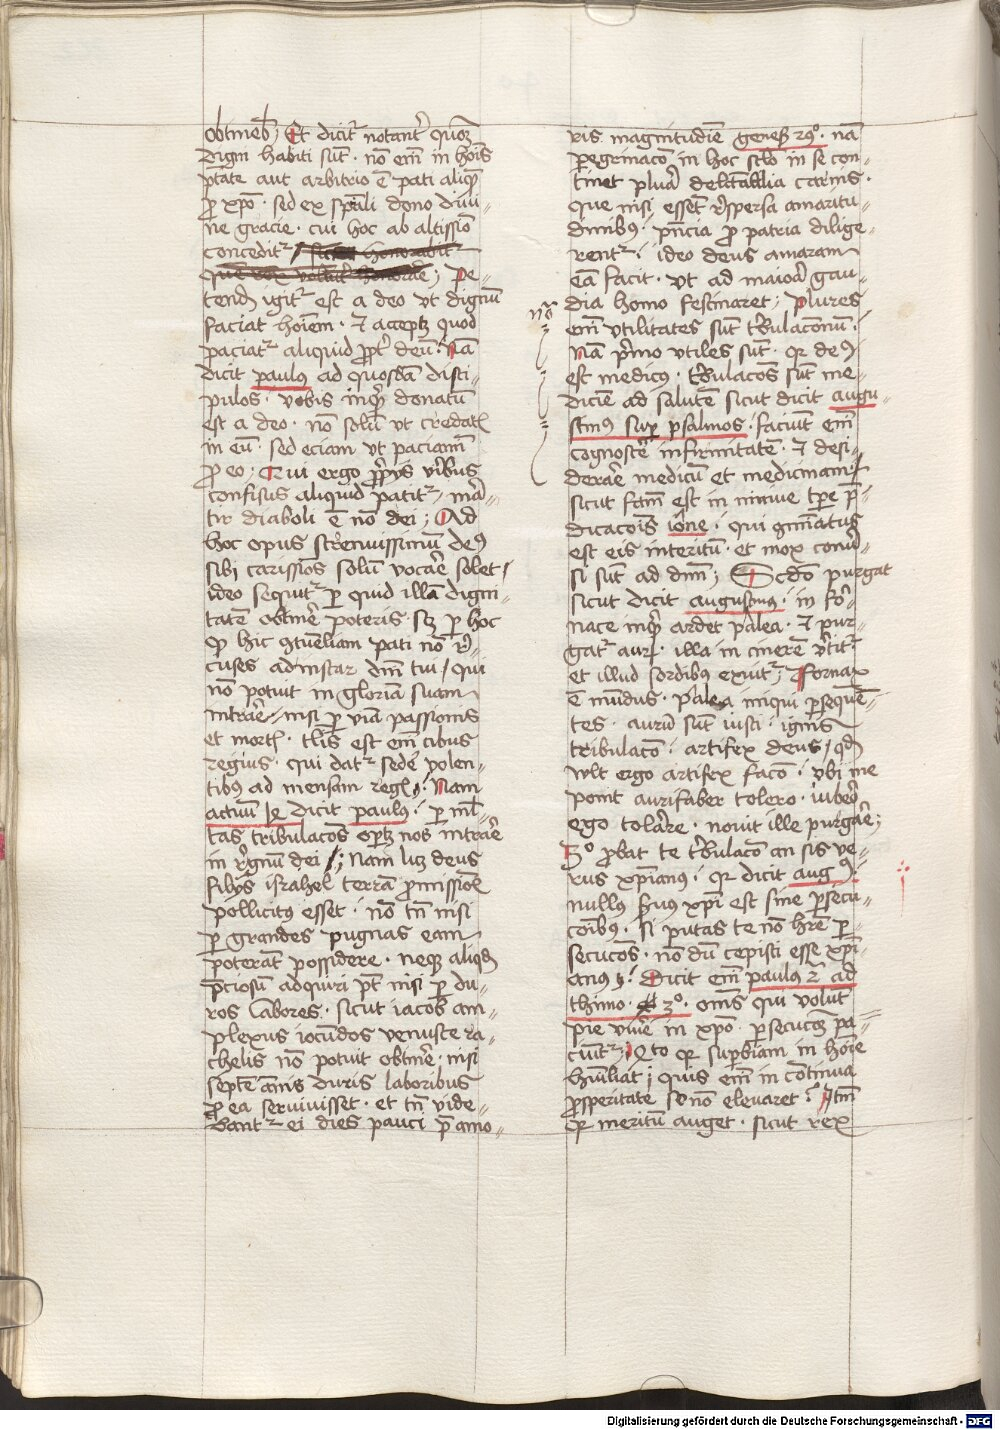 obtineb; Et dicit~ notant~ quoꝫ
digni habiti sūt · nō em̄ in hoīs
ptāte aut arbitrio ē pati aliqͥd
ꝓ xpō · sed ex spāli dono diui„
ne gracie · cui hoc ab altissīo
concedit~
Pe„
tend ꝫ igit~ est a deo vt dignū
faciat hoīem · ⁊ acceptꝫ quod
paciat~ aliquid ꝓpt~ deū · Nā
dicit paulꝰ ad quosdā disci„
pulos · vobis inqͥt donatū
est a deo · nō solū vt credatꝭ
in eū · sed eciam vt paciamī
ꝓ eo; Qui ergo ꝓpͥys vͥribus
confisus aliquid patit~ / m̄a„
tir diaboli ē nō dei; Ad
hoc opus strenuissimū deꝰ
sibi carissīos solū vocāre solet /
ideo sequit~ ꝑ quid illā digni„
tatē obtinē poteris · sꝫ ꝑ hoc
ꝙ hic ꝯtūeliam pati nō re„
cuses ad instar dnī tui / qui
nō potuit in gloriā suam
intrāre / nisi ꝑ viā passionis
et mortꝭ · tlis est em̄ cibus
regius · qui dat~ sedē volen„
tibꝰ ad mensam regꝭ · Nam
actuū ꝫ dicit paulꝰ · ꝑ ml̄
tas tribulacōs optꝫ nos intrāre
in regnū dei /; Nam licꝫ deus
filiys israhel terrā ꝓmissiōꝭ
pollicitꝰ esset · nō tn̄ nisi
ꝑ grandes pugnas eam
poterāt possidere · neqꝫ aliqͥd
p̄ciosū adquiri pt̄ nisi ꝑ du„
ros labores · sicut iacob am„
plexus iocūdos venuste ra„
chelis nō potuit obtinē · nisi
septē ānis duris laboribus
ꝓ ea seruiuisset · et tn̄ vide„
bant~ ei dies pauci p̄ amo„
ris magnitudīe geneß 29º · nā
peregrinacō in hoc sclō in se con„
tinet plura delectabilia carnis ·
que nisi essēt resꝑsa amaritu„
dinibꝰ · pn̄cia ꝓ patria dilige„
rent~ · ideo deus amaram
eā facit · vt ad maiora gau„
dia homo festinaret; plures
em̄ vtilitates sūt tribulaconū ·
nō
Nā pͥmo vtiles sūt · qr deꝰ
est medicꝰ · tribulacōs sūt me„
dicīe ad salutē sicut dicit augu„
stinꝰ suꝑ psalmos · faciūt em̄
cognoscē infirmitatē · ⁊ desi„
derāre medicū et medicinam
sicut fctm̄ est in niniue tꝑe p̄„
dicacōis ione · qui ꝯminatus
est eis interitū · et mox conuer„
si sūt ad dnm̄; Scdō purgat
sicut dicit augustinꝰ · in for„
nace inqͥt ardet palea · ⁊ pur„
gat~ aurꝫ · illa in cinerē vertit~
et illud sordibus exuit~; Fornax
ē mūdus · palea iniqui ꝑsequē„
tes · aurū sūt iusti · ignis
tribulacō · artifex deus / qd
wlt ergo artifex facō · vbi me
ponit aurifaber tolero · iubet
ergo tolāre · nouit ille purgāre;
3º ꝓbat te tribulacō an sis ve„
rus xpīanus · qr dicit augꝰ ·
nullus ẜuus xpī est sine ꝑsecu„
cōibꝰ · si putas te nō hr̄e ꝑ„
secucōs · nō dū cepisti esse xpī„
anus · Dicit em̄ paulus 2ª ad
thimo · 3º · om̄s qui volūt
pie viuē in xpō · ꝑsecucoꝫ pa„
ciūt~; Qto qr suꝑbiam in hoīe
hūiliat · quis em̄ in continua
ꝓsperitate se nō eleuaret · Itm̄
qr meritū auget · sicut rex
Digitalisierung gefördert durch die Deutsche Forschungsgemeinschaft - DFG